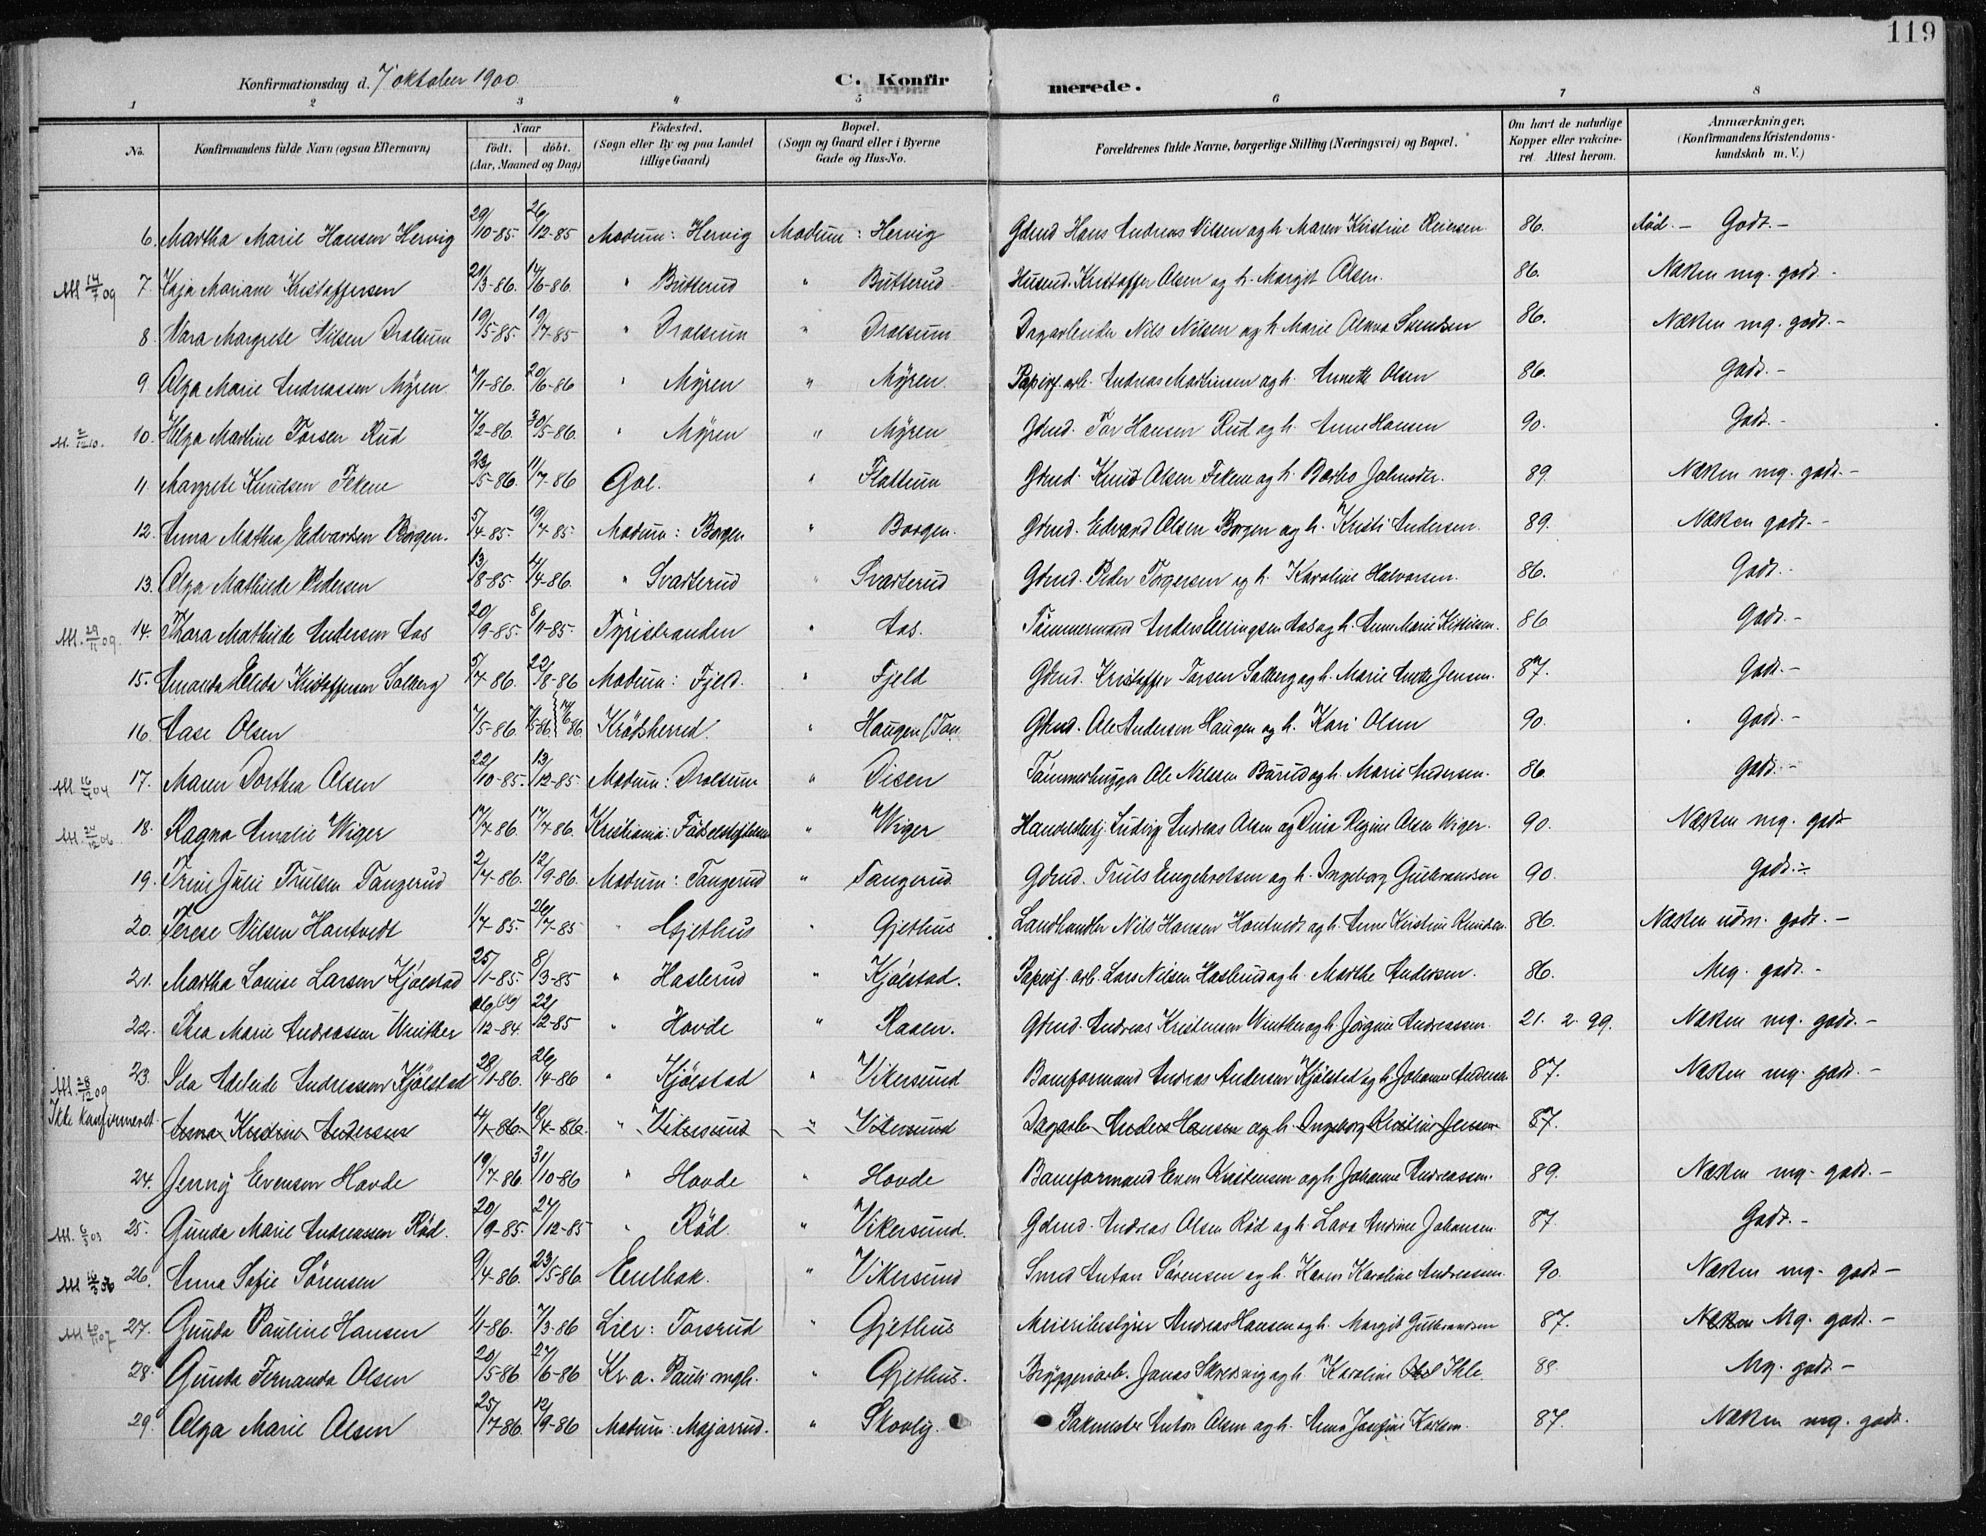 119
Konfirmationsdag d. 7 oktober 1900
C. Konfirmerede.
1 2 3 4 5 6 7 8
No. Konfirmandens fulde Navn (ogsaa Efternavn) Naar födt. döbt. (Aar, Maaned og Dag) Födested. (Sogn eller By og paa Landet tillige Gaard) Bopæl. (Sogn og Gaard eller i Byerne Gade og Hus-No. Forældrenes fulde Navne, borgerlige Stilling (Næringsvei) og Bopæl. Om havt de naturlige Kopper eller vakcineret. Attest herom. Anmærkninger. (Konfirmandens Kristendomskundskab m. V.)
6. Martha Marie Hansen Hervig 29/10-85. 26/12-85 Modum: Hervig Modum: Hervig Gdmd Hans Andreas Nilsen og h. Maren Kristine Reiersen 86. Godt.-
M 14/7 09 7. Kaja Mariane Kristoffersen 21/3-86. 14/6-86. " Butterud " Butterud Husmd. Kristoffer Olsen og h. Margit Olsen. 86. Næsten mg. godt-
8. Nora Margrete Nilsen Drolsum 19/5-85. 19/7-85 " Drolsum " Drolsum Dagarbeider Nils Nilsen og h. Marie Olava Svendsen 86. Næsten mg. godt.-
9. Olga Marie Andreassen Myren 7/1-86. 20/6-86 " Myren " Myren Papirf. arb. Andreas Martinsen og h. Annette Olsen 86. Godt.-
M. 2/12 10. 10. Helga Martine Torsen Rud 7/2-86. 30/5-86. " Myren " Myren Gdmd. Tor Hansen Rud og h. Anne Hansen 90. Godt.-
11. Margrete Knudsen Fekene 23/5-86. 11/7-86 Gol. " Flattum Gdmd. Knud Olsen Fekene og h. Barbo Johnsdtr. 89. Næsten mg. godt.-
12. Anna Mathea Edvardsen Borgen. 5/4-85. 19/4-85. Modum: Borgen " Borgen. Gdmd. Edvard Olsen Borgen og h. Kristi Andersen. 89. Næsten godt.-
13. Olga Mathilde Pedersen 13/8-85. 4/4-86. " Svarterud " Svarterud Gdmd. Peder Torgersen og h. Karoline Halvorsen. 86. Godt.-
M. 29/11 09. 14. Thora Mathilde Andersen Aas 20/9-85. 8/11-85. Tyristranden " Aas. Tømmermand Anders Ellingsen Aas og h. Anne Marie Kittilsen. 86 Godt.-
15. Amanda Elida Kristoffersen Solberg 5/7-86. 22/8-86 Modum: Fjeld. " Fjeld Gdmd. Kristoffer Torsen Solberg og h. Marie Anette Jensen. 87. Godt.-
16. Aase Olsen 7/5-86. 7/5-86. 14/6 86 Krødsherred. " Haugen (Ton Gdmd. Ole Andersen Haugen og h. Kari Olsen 90. Godt.-
M. 16/4 04 17. Maren Dorthea Olsen 22/10-85. 13/12-85 Modum: Drolsum " Disen Tømmerhugger Ole Nilsen Burud og h. Marie Andersen. 86. Godt.-
M. 24/12 06. 18. Ragna Amalie Wiger 17/7-86. 17/7-86. Kristiania: Fødselsstiftelsen " Wiger Handelsbetj. Ludvig Andreas Olsen og Dina Regine Olsen Wiger. 90. Næsten mg. godt
19. Trine Julie Trulsen Tangerud 2/7-86. 12/9-86. Modum: Tangerud " Tangerud. Gdmd. Truls Engebretsen og h. Ingeborg Gulbrandsen 90. Godt.-
20. Terese Nilsen Hontvedt 1/7-85. 26/7-85 " Gjethus " Gjethus Landhandler Nils Hansen Hontvedt og h. Anne Kirstine Knudsen. 86. Næsten udm. godt.-
21. Martha Louise Larsen Kjølstad 25/1-85. 8/3-85 " Haslerud " Kjølstad. Papirf. arb. Lars Nilsen Haslerud og h. Marthe Andersen. 86. Meg. godt.-
22. Thea Marie Andreassen Winther 26/12-84. 22/12-85 " Hovde " Raaen. Gdmd. Andreas Kristensen Winther og h. Jørgine Andreassen. 21. 2. 99. Næsten mg. godt.-
M. 28/12 09 23. Ida Adeleide Andreassen Kjølstad 28/1-86. 26/4-86 " Kjølstad " Vikersund Bomformand Andreas Andersen Kjølstad og h. Johanne Andersen 87. Næsten mg. godt.-
Ikke konfirmeret. Anna Kristine Andersen 4/1-86. 18/4-86. " Vikersund " Vikersund Dagarb. Anders Hansen og h. Ingeborg Kristine Jensen 87.
24. Jenny Evensen Hovde 19/7-86. 31/10-86 " Hovde " Hovde Bomformand Even Kristensen og h. Johanne Andreassen. 89. Næsten mg. godt.-
M. 6/3 03 25. Gunda Marie Andreassen Rød. 20/9-85. 27/12-85 " Rød. " Vikersund. Gdmd. Andreas Olsen Rød og h. Lava Andrine Johansen 87. Godt.-
M 16/3 36 26. Anna Sofie Sørensen 9/4-86. 23/5-86. Enebak. " Vikersund Smed Anton Sørensen og h. Karen Karoline Andreassen. 90. Næsten mg. godt-
M 20/1 07 27. Gunda Pauline Hansen 1/1-86. 7/3-86 Lier: Torsrud " Gjethus Meieribestyrer Andreas Hansen og h. Margit Gulbrandsen 87. Næsten Mg. godt.-
28. Gunda Fernanda Olsen 20/5-86 27/6-86 Kr.a. Pauli mgh. " Gjethus. Bryggeriarb. Jonas Skredsvig og h. Karoline Ihle. 88 Mg. godt.-
29. Olga Marie Olsen 25/7-86. 12/9-86 Modum: Mojorrud. " Skovly. Pakmester Anton Olsen og h. Anna Josefine Karlsen. 87. Næsten mg. godt.